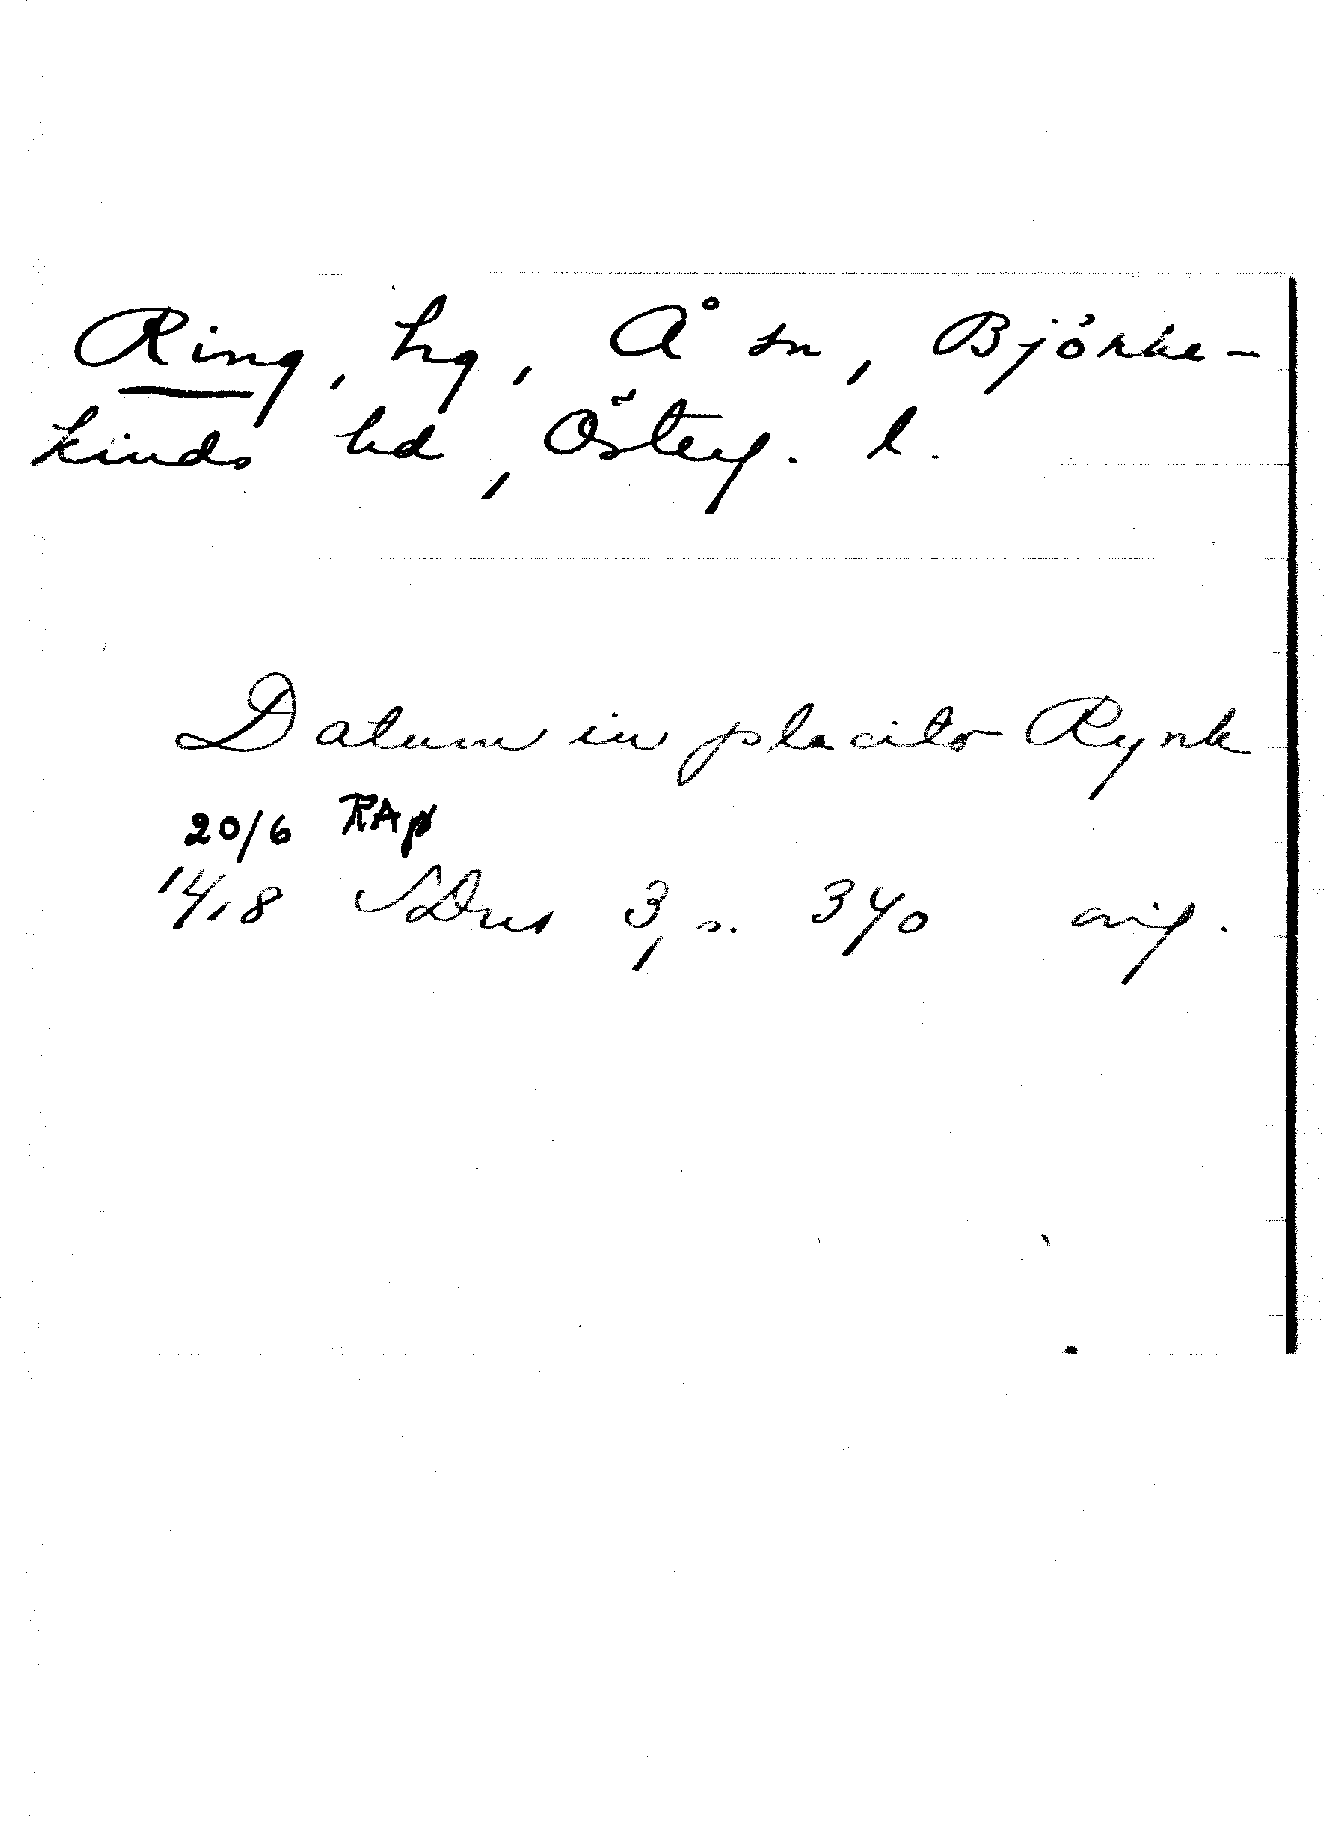 Ring, hg, Å sn, Björke-
kinds hd, Österg. l.
Datum in placito Rynk
20/6 RAp
1418 SDns 3, s. 340 orig.